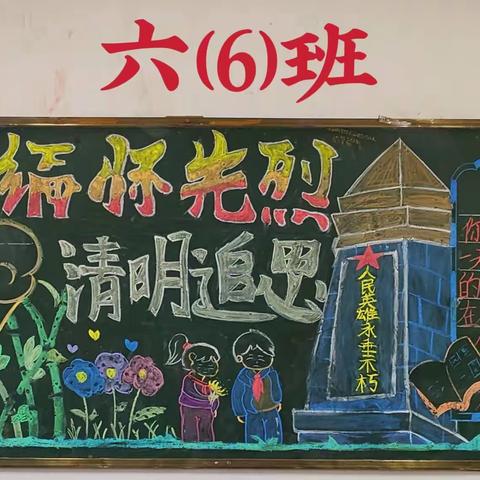 六(6)班
缅怀先烈
清明追思
人民英雄永垂不朽
你
的
在